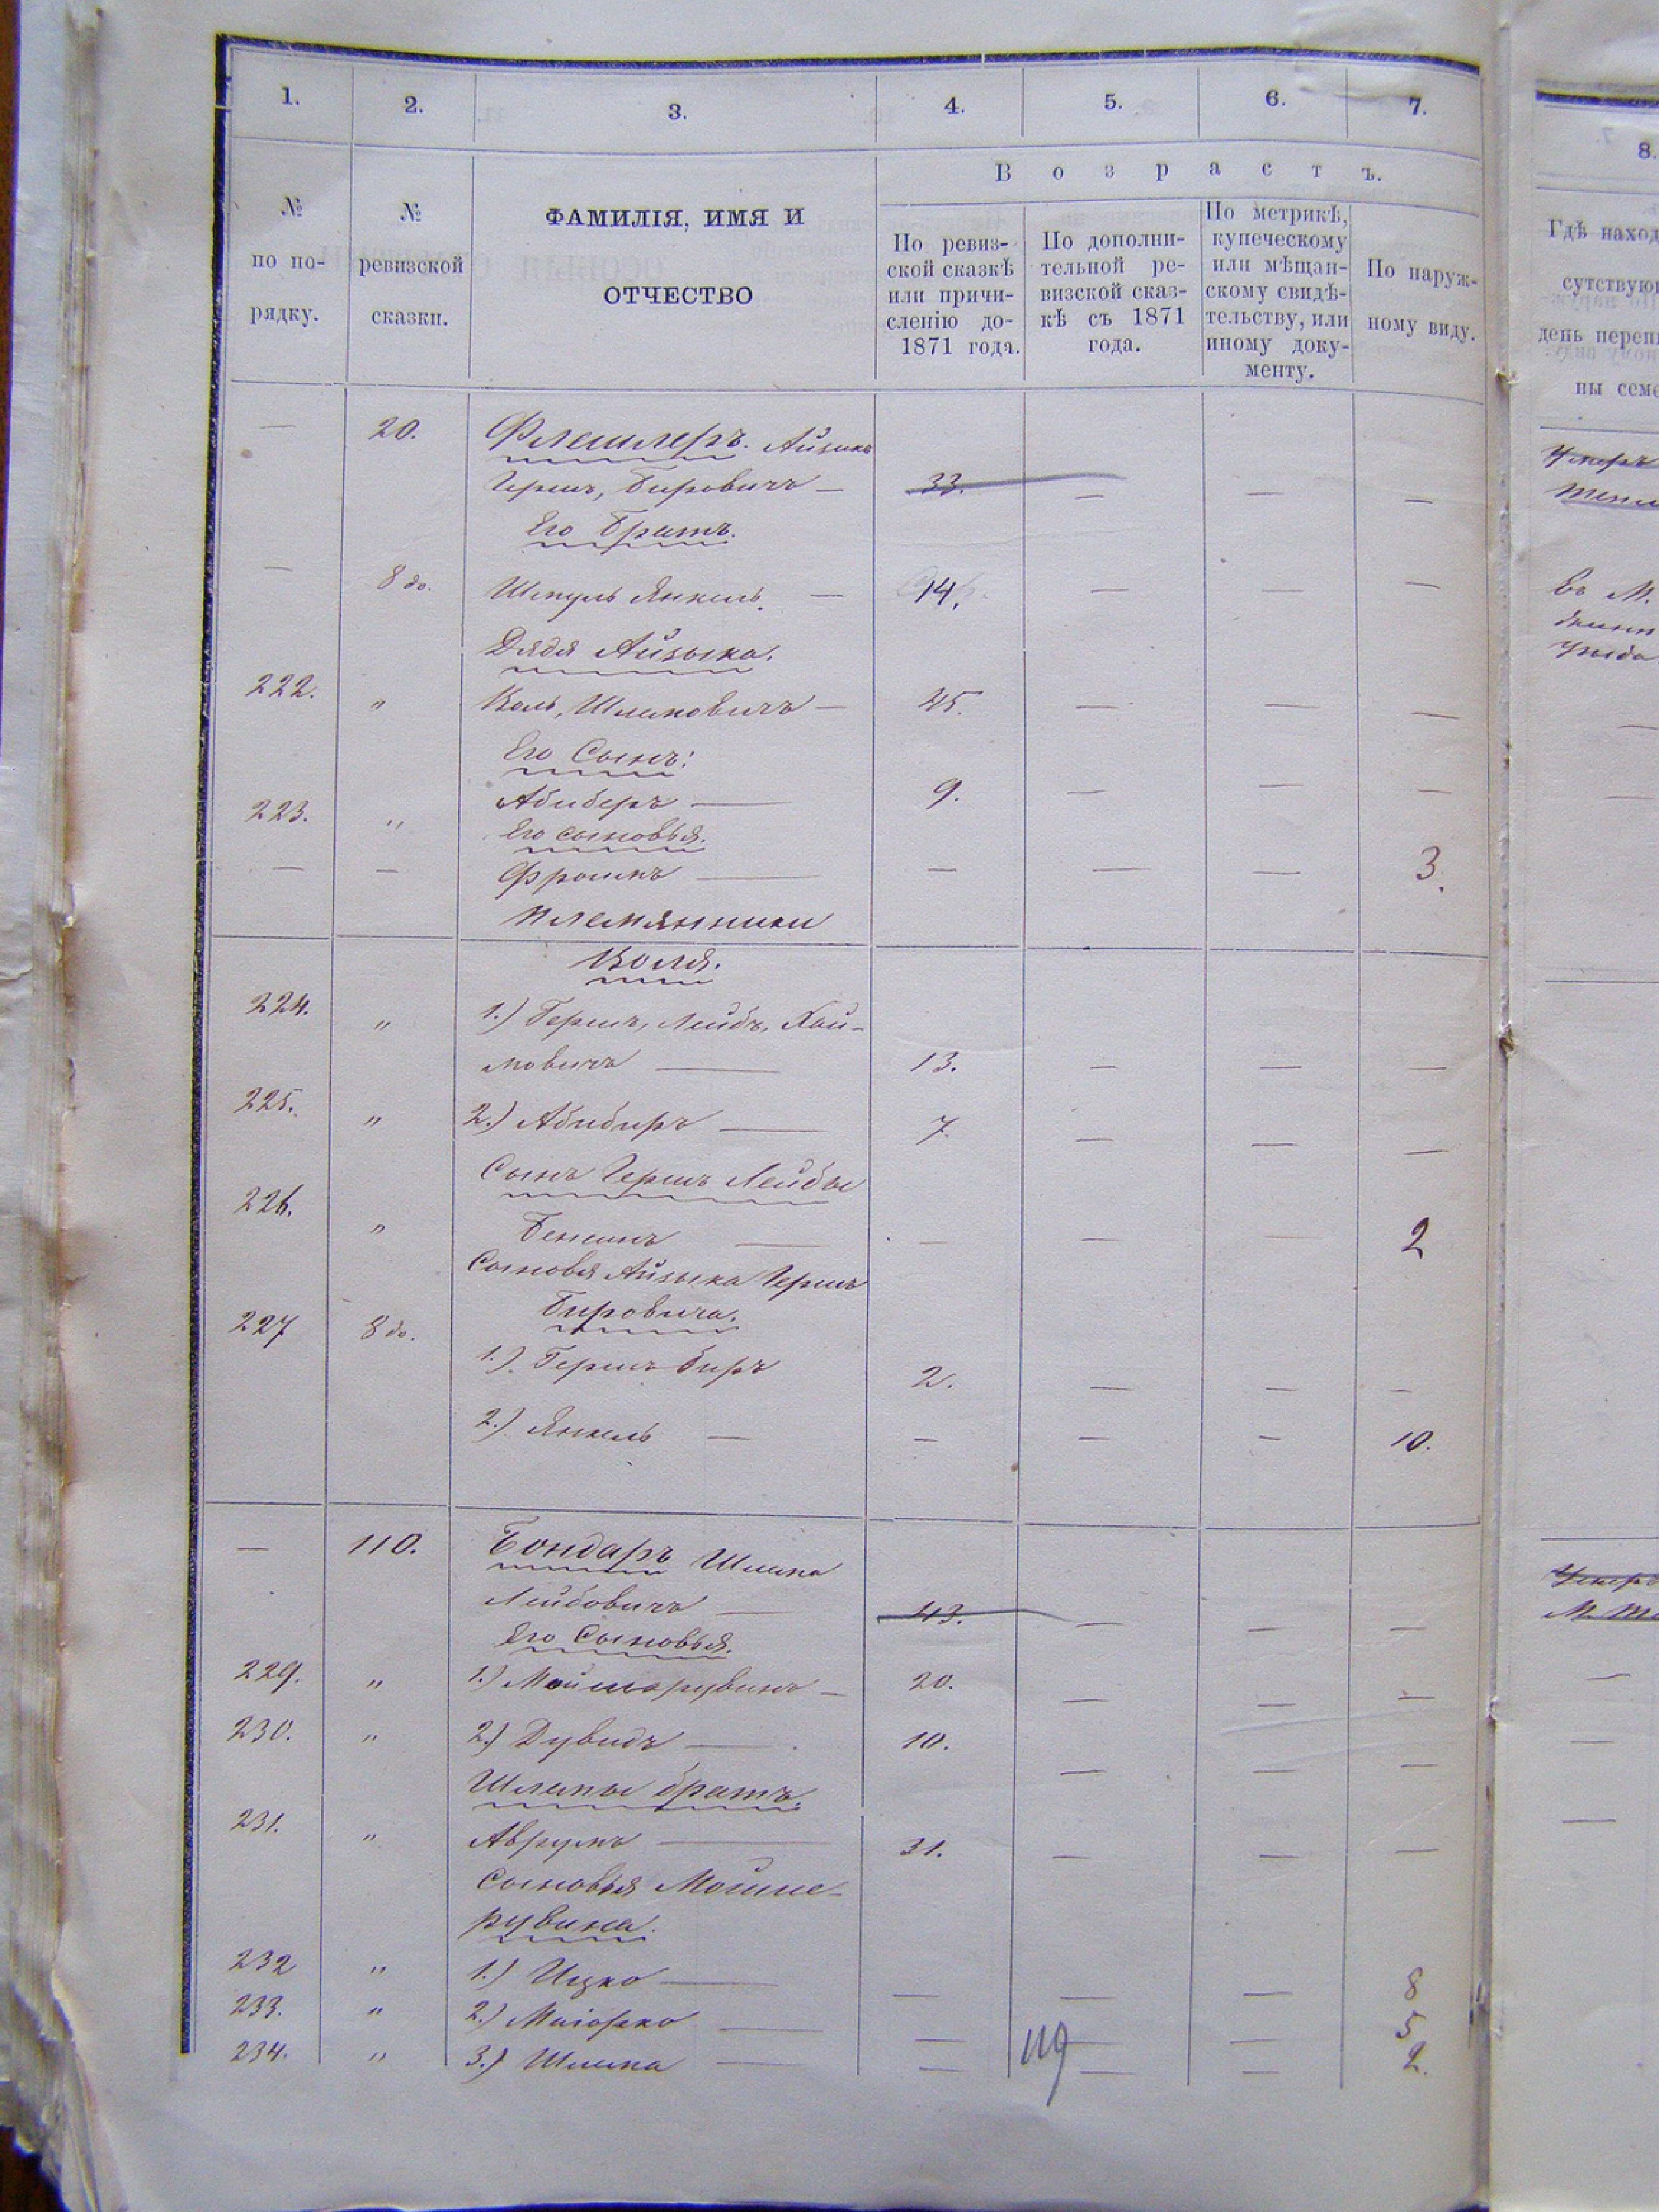 1. 2. 3. 4. 5. 6. 7.
В о з р а с т ъ.
№
по по-
рядку.
№
ревизской
сказки.
ФАМИЛІЯ, ИМЯ И
ОТЧЕСТВО
По ревиз-
ской сказкѣ
или причи-
сленію до-
1871 года.
По дополни-
тельной ре-
визской сказ-
кѣ съ 1871
года.
По метрикѣ,
купеческому
или мѣщан-
скому свидѣ-
тельству, или
иному доку-
менту.
По наруж-
ному виду.
— 20. Флешлеръ. Айзикъ
Гершъ, Бировичъ — 33. — — —
Его Братъ.
— 8 до. Шмуль Янкель. — 14. — — —
Дядя Айзыка.
222. " Коль, Шлиомовичъ — 45. — — —
Его Сынъ:
223. " Абиберъ — 9. — — —
Его сыновья.
— — Фроимъ — — — — 3.
Племянники
Коля.
224. " 1.) Гершъ, Лейбъ, Хай-
мовичъ — 13. — — —
225. " 2.) Абибиръ — 7. — — —
Сынъ Гершъ Лейбы
226. " Бенсинъ — — — — 2
Сыновья Айзыка Гершъ
Бировича.
227 8 до. 1.). Гершъ Биръ 2. — — —
2.) Янкель — — — — 10.
— 110. Бондаръ Шлиома
Лейбовичъ — 43. — — —
Его Сыновья.
229. " 1.) Мойшерувинъ — 20. — — —
230. " 2.) Дувидъ — 10. — — —
Шлемы братъ.
231. " Аврумъ — 31. — — —
Сыновья Мошше-
рувина.
232 " 1.) Ицко — — — — 8
233. " 2.) Маіорко — — — — 5
234. " 3.) Шлиома — — — — 2.
119
8.
Гдѣ наход
сутствую
день переп
ны семе
Умеръ
въ М.
Умеръ